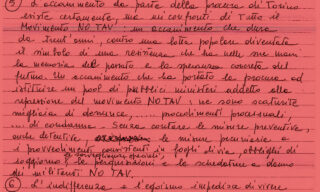 ⑤ L'accanimento da parte della procura di Torino
esiste certamente, ma nei confronti di tutto il
Movimento NO TAV: un accanimento che dura
da trent'anni, contro una lotta popolare diventata
il simbolo di una resistenza che ha nelle sue mani
la memoria del passato e la speranza concreta del
futuro. Un accanimento che ha portato la procura ad
istituire un pool di pubblici ministeri addetto alla
repressione del movimento NO TAV: ne sono scaturite
migliaia di denunce, procedimenti processuali,
di condanne. Senza contare le misure preventive,
anche detentive, le misure pecuniarie e
i provvedimenti fogli di via, obblighi di
soggiorno e la sorveglianza speciale,
le e la schedature a danno
dei militanti NO TAV.
⑥ L'indifferenza e l'egoismo impedisce di vivere